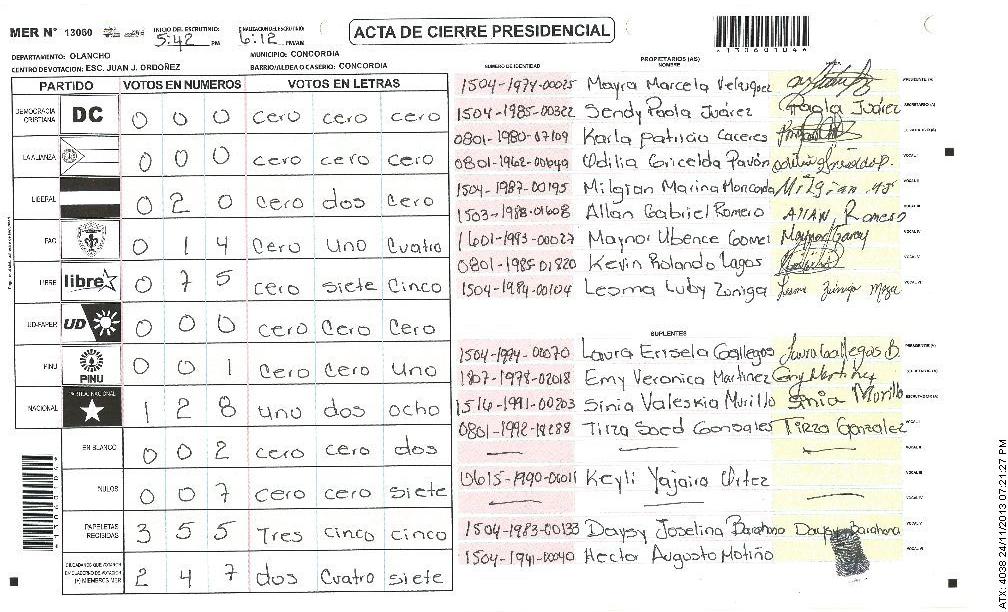 MER N° 13060
INICIO DEL ESCRUTINIO: 5:42 PM
FINALIZACION DEL ESCRUTINIO: 6:12 PM/AM
ACTA DE CIERRE PRESIDENCIAL
DEPARTAMENTO: OLANCHO
MUNICIPIO: CONCORDIA
CENTRO DE VOTACION: ESC. JUAN J. ORDOÑEZ
BARRIO/ALDEA O CASERIO: CONCORDIA
PARTIDO VOTOS EN NUMEROS VOTOS EN LETRAS
DEMOCRACIA CRISTIANA DC 0 0 0 cero cero cero
LA ALIANZA 0 0 0 cero cero cero
LIBERAL 0 2 0 cero dos cero
PAC 0 1 4 cero uno cuatro
LIBRE libre 0 7 5 cero siete cinco
UD-FAPER UD 0 0 0 cero cero cero
PINU PINU 0 0 1 cero cero uno
NACIONAL 1 2 8 uno dos ocho
EN BLANCO 0 0 2 cero cero dos
NULOS 0 0 7 cero cero siete
PAPELETAS RECIBIDAS 3 5 5 Tres cinco cinco
CIUDADANOS QUE VOTARON EN EL CUADERNO DE VOTACION (+) MIEMBROS MER 2 4 7 dos cuatro siete
PROPIETARIOS (AS)
NUMERO DE IDENTIDAD NOMBRE
1504-1974-00025 Mayra Marcela Velasquez PRESIDENTE (A)
1504-1985-00322 Sendy Paola Juárez Paola Juárez SECRETARIO (A)
0801-1980-07109 Karla Patricia Caceres ESCRUTADOR (A)
0801-1962-00649 Odilia Gricelda Pavón VOCAL I
1504-1987-00195 Milgian Marina Moncada Milgian VOCAL II
1503-1988-01608 Allan Gabriel Romero Allan Romero VOCAL III
1601-1993-00027 Maynor Ubence Gomez Maynor VOCAL IV
0801-1985-01820 Kevin Rolando Lagos VOCAL V
1504-1984-00104 Lesma Luby Zuniga Lesma Zuniga Meza VOCAL VI
SUPLENTES
1504-1994-00070 Laura Ensela Gallegos Laura Gallegos B. PRESIDENTE (A)
1807-1978-02018 Emy Veronica Martinez Emy Martinez SECRETARIO (A)
1516-1991-00203 Sinia Valeskia Murillo Sinia Murillo ESCRUTADOR (A)
0801-1992-18288 Tirza Saed Gonsales Tirza Gonzalez VOCAL I
VOCAL II
0615-1990-00011 Keyli Yajaira Ortez VOCAL III
VOCAL IV
1504-1983-00133 Daysy Joselina Barahona Daysy Barahona VOCAL V
1504-1941-00040 Hector Augusto Motiño VOCAL VI
ATX: 4038 24/11/2013 07:21:27 PM